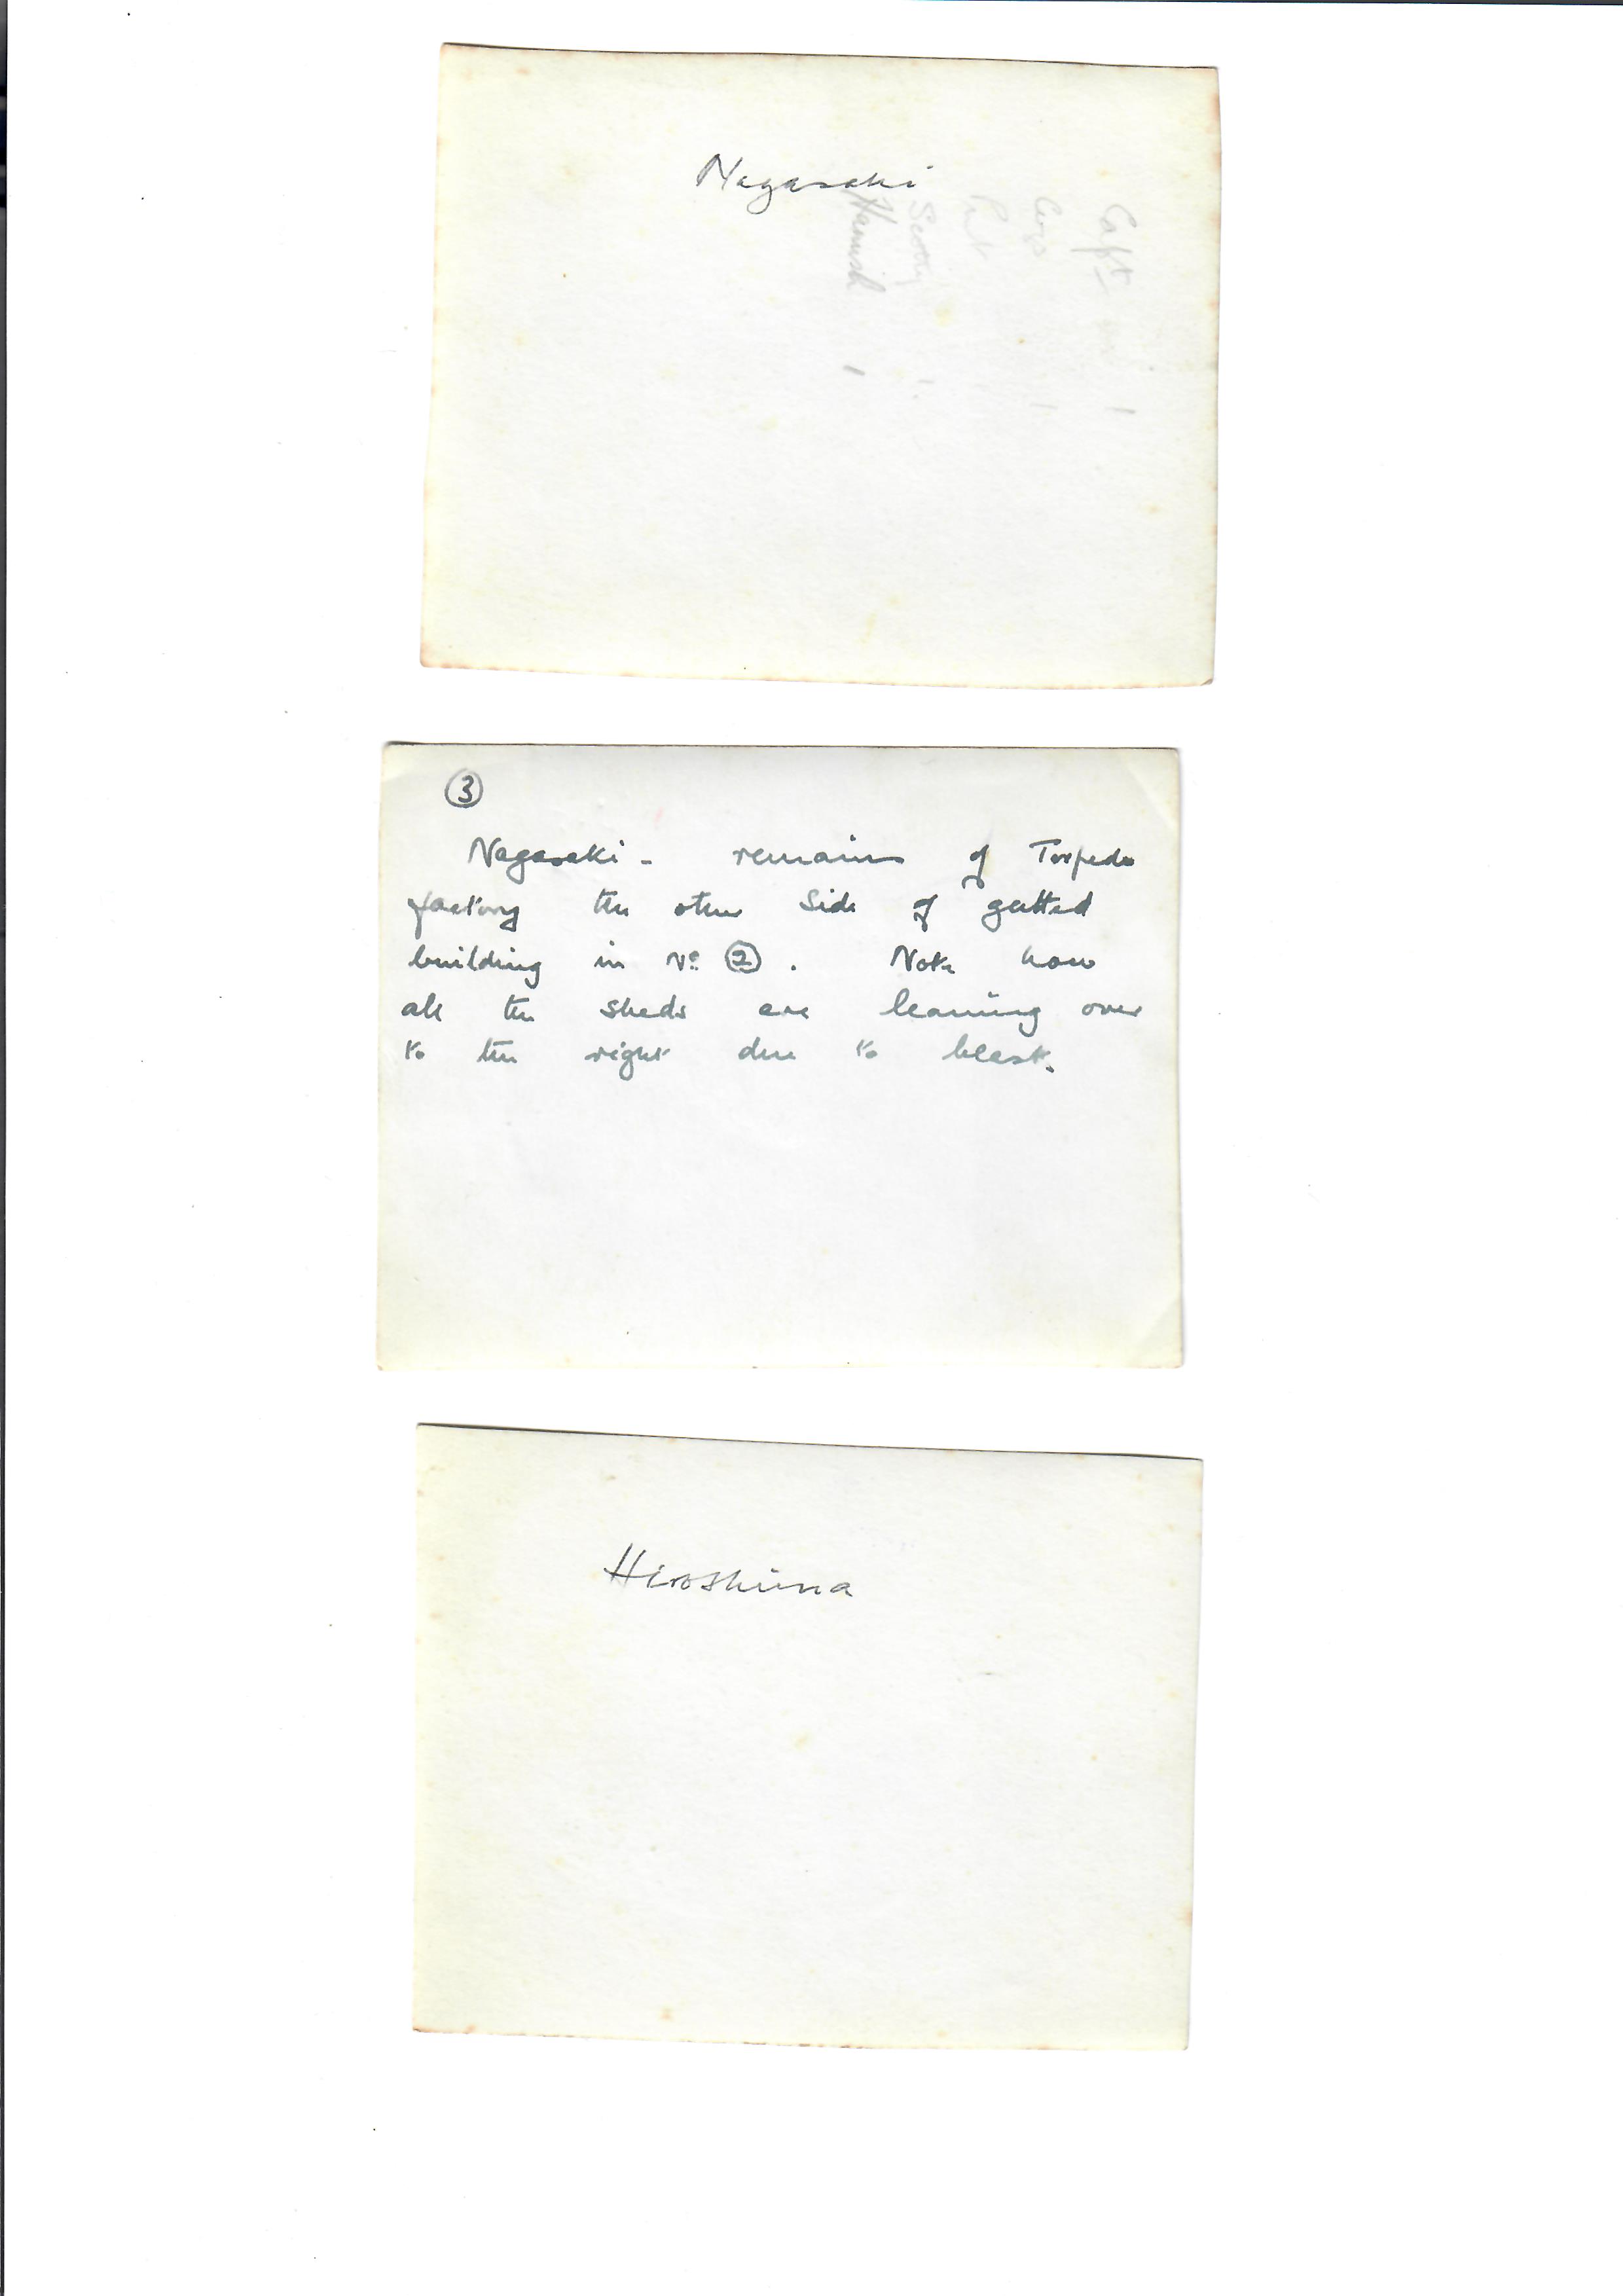 Nagasaki
Capt
Scotty
Hamish
③
Nagasaki - remains of Torpedo
factory the other side of gutted
building in No ②. Note how
all the sheds are leaning over
to the right due to blast.
Hiroshima